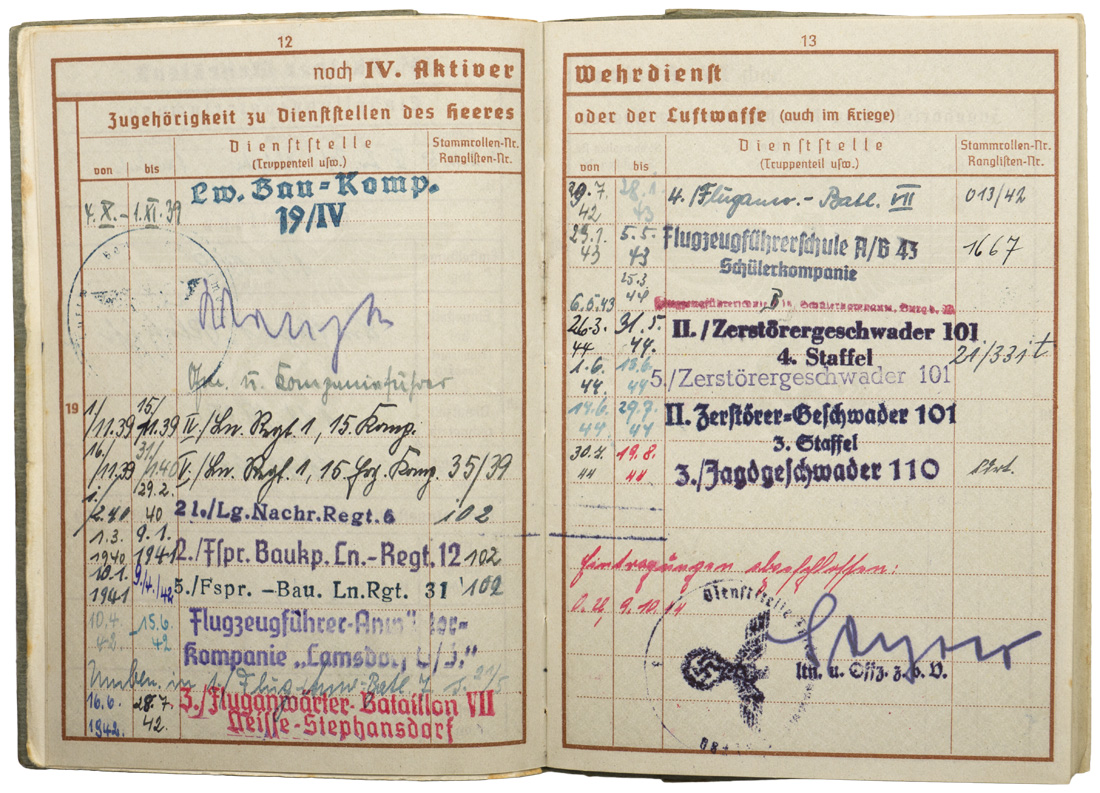 12
noch IV. Aktiver
Zugehörigkeit zu Dienststellen des Heeres
von
bis
Dienststelle
(Truppenteil usw.)
Stammrollen-Nr.
Ranglisten-Nr.
4. X. - 1. XI. 39
Lw. Bau=Komp.
19/IV
u. Kompanieführer
19
1/11.39
15/11.39
IV/Ln. Regt. 1, 15. Komp.
16./11.39
31/1.40
V/Ln. Regt. 1, 15. Komp.
35/39
1./2.40
29.2.40
21./Lg.Nachr.Regt.6
102
1.3.1940
9.1.1941
2./Fspr. Baukp. Ln.-Regt. 12
102
10.1.1941
9/4./42
5./Fspr. -Bau. Ln.Rgt. 31
102
10.4.42
15.6.42
Flugzeugführer-
Kompanie „Lamsdorf
16.6.1942.
28.7.42.
3./Fluganwärter-Bataillon VII
Neisse-Stephansdorf
13
Wehrdienst
oder der Luftwaffe (auch im Kriege)
von
bis
Dienststelle
(Truppenteil usw.)
Stammrollen-Nr.
Ranglisten-Nr.
29.7.42
28.1.43
4./Fluganw.-Batl. VII
013/42
29.1.43
5.5.43
Flugzeugführerschule A/B 43
Schülerkompanie
1667
6.5.43
25.3.44
26.3.44
31.5.44.
II./Zerstörergeschwader 101
4. Staffel
21/331t
1.6.44.
13.6.44
5./Zerstörergeschwader 101
14.6.44
29.7.44
II. Zerstörer=Geschwader 101
3. Staffel
30.7.44
19.8.44
3./Jagdgeschwader 110
Eintragungen abgeschlossen:
O.U, 9.10.44
Dienststelle
ltn. u. Offz. z. b. V.